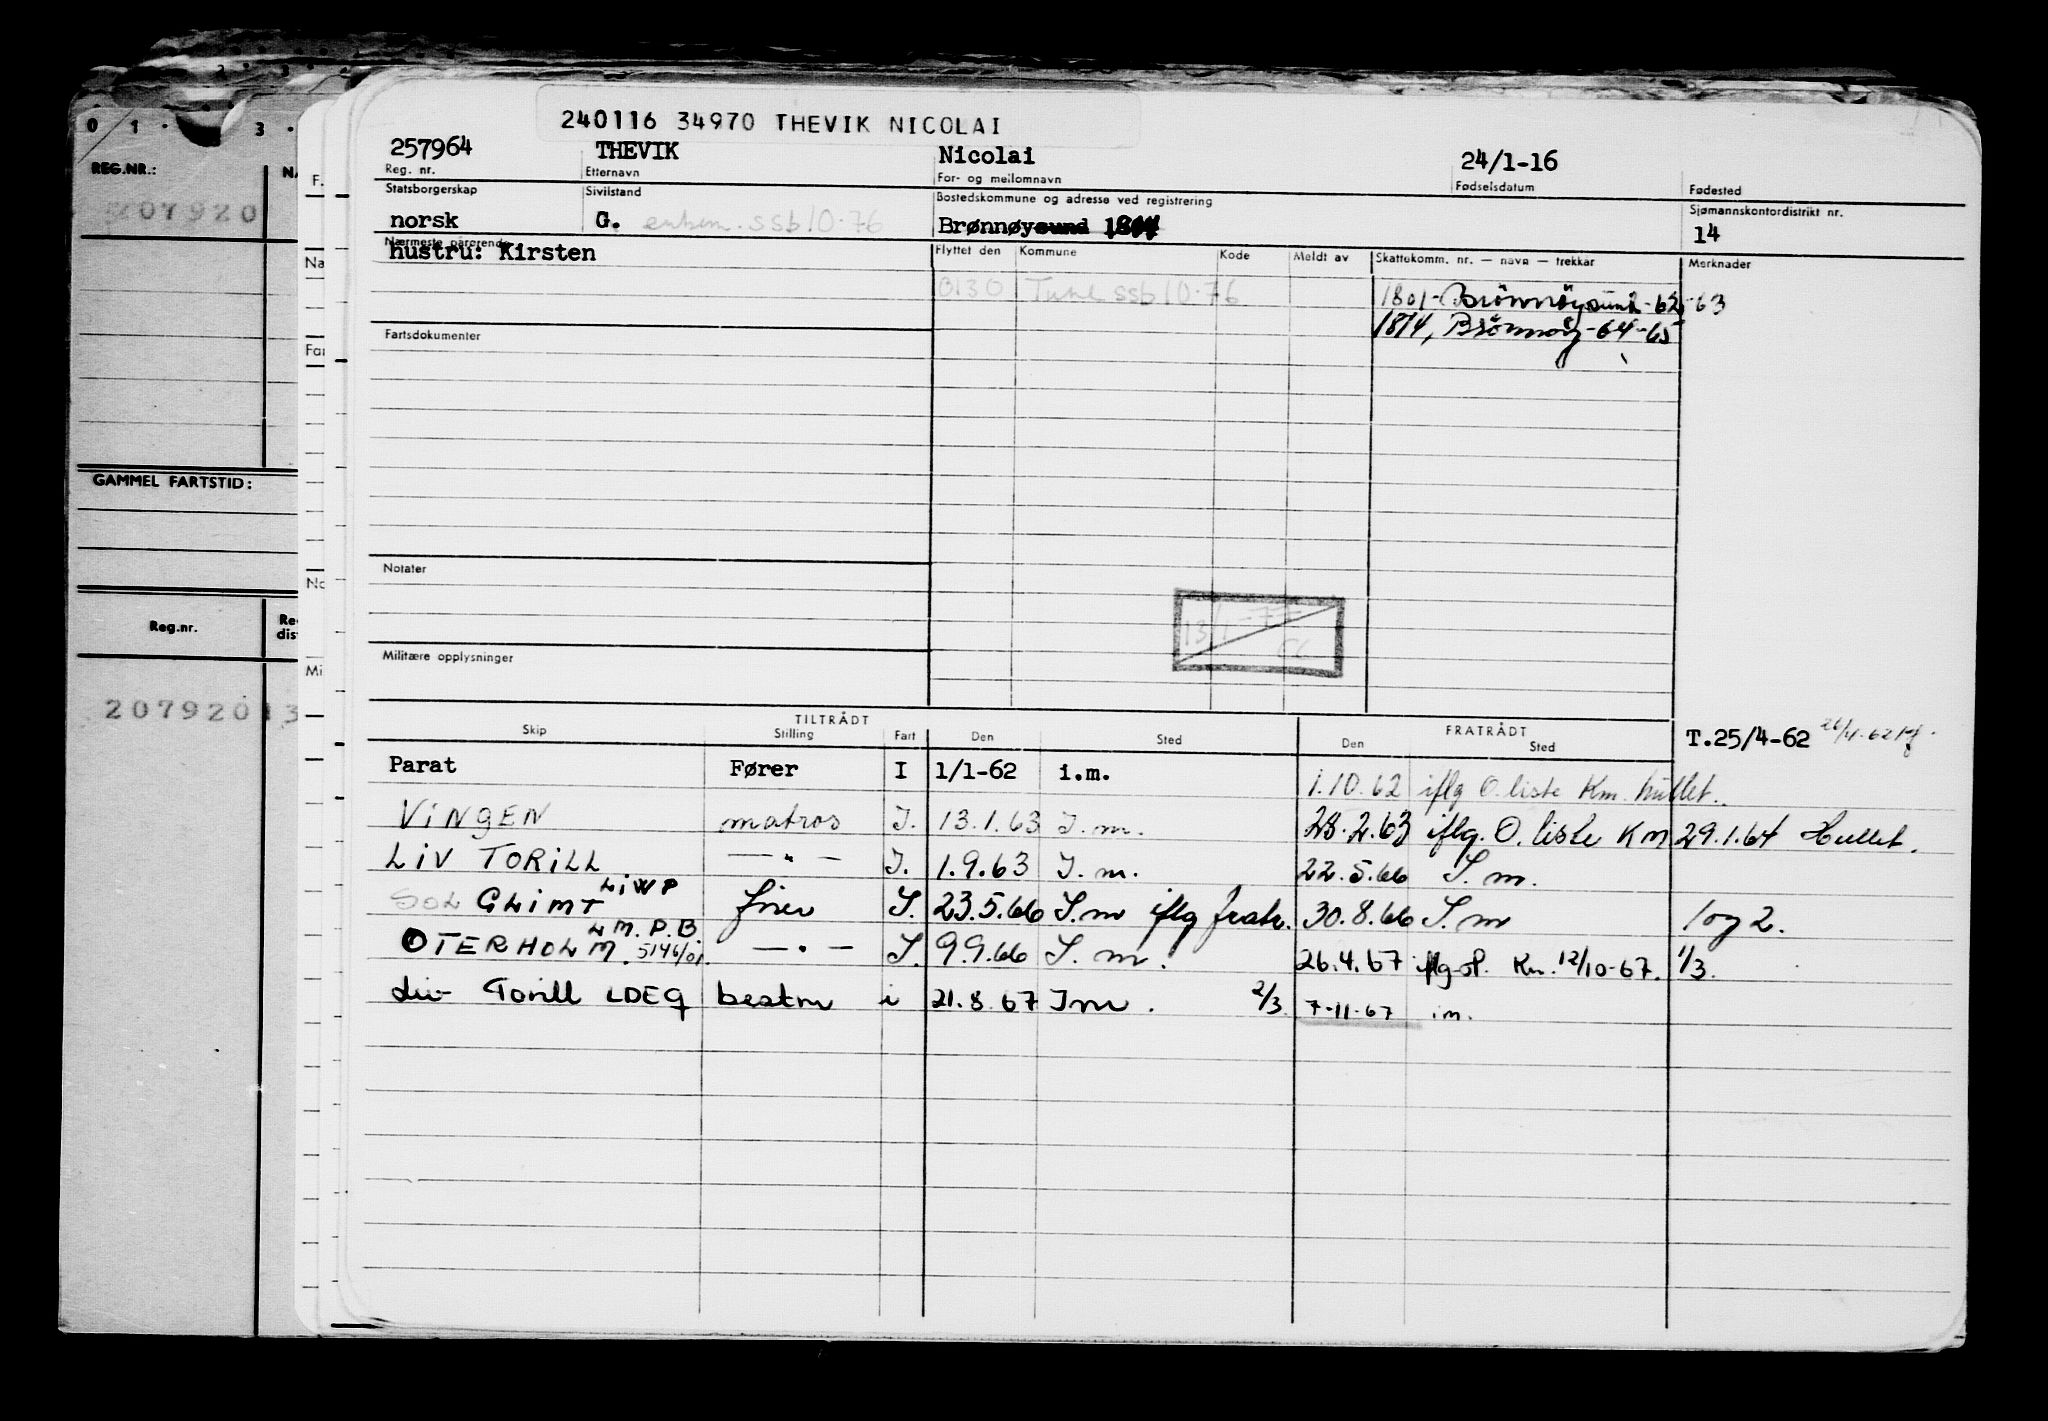 0 1 · 3 ·
REG.NR.:
207920
GAMMEL FARTSTID:
Reg.nr.
207920 13
240116 34970 THEVIK NICOLAI
257964 THEVIK Nicolai 24/1-16
Reg. nr. Etternavn For- og mellomnavn Fødselsdatum Fødested
Statsborgerskap Sivilstand Bostedskommune og adresse ved registrering Sjømannskontordistrikt nr.
norsk G. enkem. ssb 10-76 Brønnøysund 14
Nærmeste pårørende Flyttet den Kommune Kode Meldt av Skattekomm. nr. — navn — trekkår Merknader
hustru: Kirsten
0130 Tune ssb 10-76 1801- Brönnöysund -62-63
1814, Brönnöy -64-65
Fartsdokumenter
Notater
13/1-77
Militære opplysninger
TILTRÅDT FRATRÅDT
Skip Stilling Fart Den Sted Den Sted
T.25/4-62 26/4-62
Parat Fører I 1/1-62 i.m. 1.10.62 iflg O.liste Km. hullet.
VINGEN matros I. 13.1.63 I.m. 28.2.63 iflg. O.liste Km 29.1.64 Hullet.
LIV TORILL — " — I. 1.9.63 I.m. 22.5.66 I.m.
SOL GLIMT LIWP fører I. 23.5.66 I.m iflg fratr. 30.8.66 I.m log 2.
OTERHOLM. LMPB 5146/01. — " — I. 9.9.66 I.m. 26.4.67 iflg. Km. 12/10-67. 1/3.
Liv Torill LDEQ bestm i 21.8.67 Im. 2/3 7-11-67 i.m.